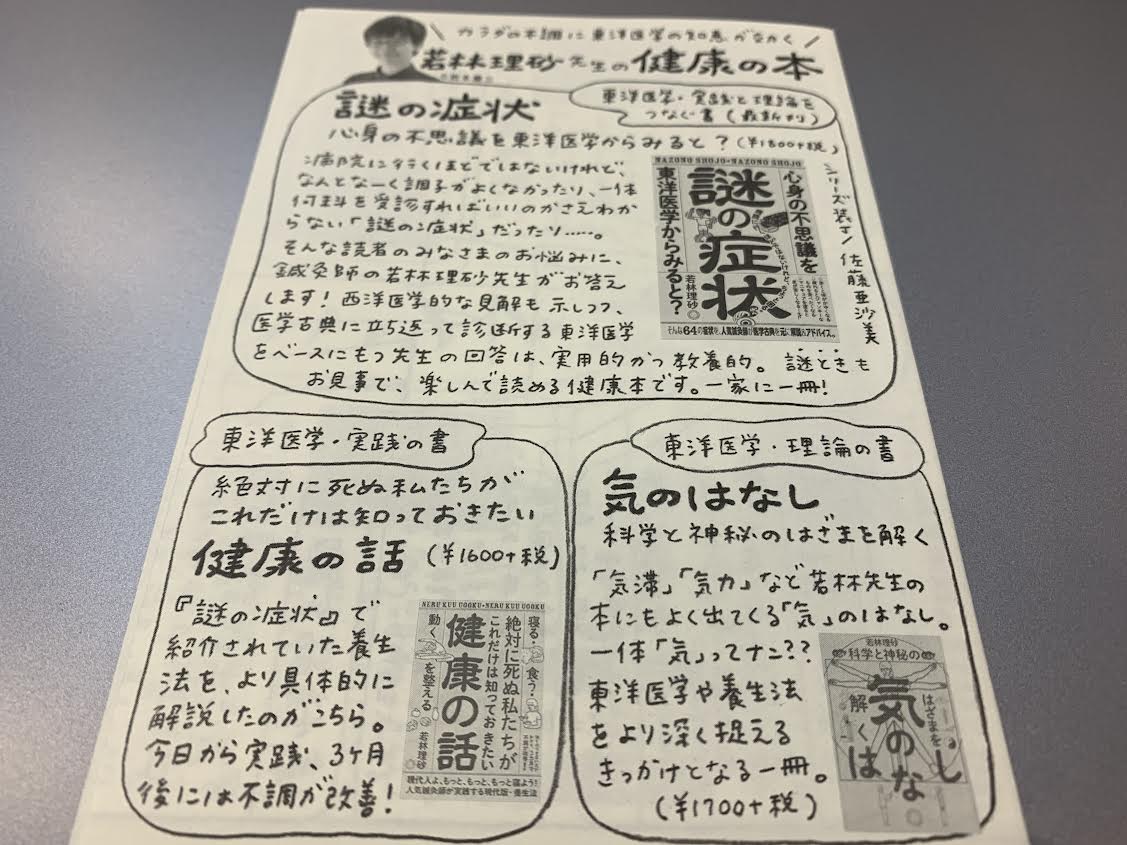 カラダの不調に東洋医学の知恵がきく
若林理砂先生の健康の本
東洋医学・実践と理論を
つなぐ書(最新刊)
謎の症状
心身の不思議を東洋医学からみると?(¥1800+税)
病院に行くほどではないけれど、
なんとなーく調子がよくなかったり、一体
何科を受診すればいいのかさえわか
らない「謎の症状」だったり……。
そんな読者のみなさまのお悩みに、
鍼灸師の若林理砂先生がお答え
します!西洋医学的な見解も示しつつ、
医学古典に立ち返って診断する東洋医学
をベースにもつ先生の回答は、実用的かつ教養的。謎ときも
お見事で、楽しんで読める健康本です。一家に一冊!
NAZONO SHOJO・NAZONO SHOJO
心身の不思議を
謎の症状
東洋医学からみると?
若林理砂
そんな64の症状を、人気鍼灸師が医学古典を元に解説&アドバイス。
シリーズ装丁/佐藤亜沙美
東洋医学・実践の書
絶対に死ぬ私たちが
これだけは知っておきたい
健康の話(¥1600+税)
『謎の症状』で
紹介されていた養生
法を、より具体的に
解説したのがこちら。
今日から実践、3ヶ月
後には不調が改善!
NERU KUU UGOKU・NERU KUU UGOKU
寝る・食う・
絶対に死ぬ私たちが
これだけは知っておきたい
健康の話
動く
を整える
若林理砂
現代人よ、もっと、もっと、もっと寝よう!
人気鍼灸師が実践する現代版・養生法
東洋医学・理論の書
気のはなし
科学と神秘のはざまを解く
「気滞」「気力」など若林先生の
本にもよく出てくる「気」のはなし。
一体「気」ってナニ??
東洋医学や養生法
をより深く捉える
きっかけとなる一冊。
(¥1700+税)
若林理砂
科学と神秘の
はざまを
解く
気のはなし